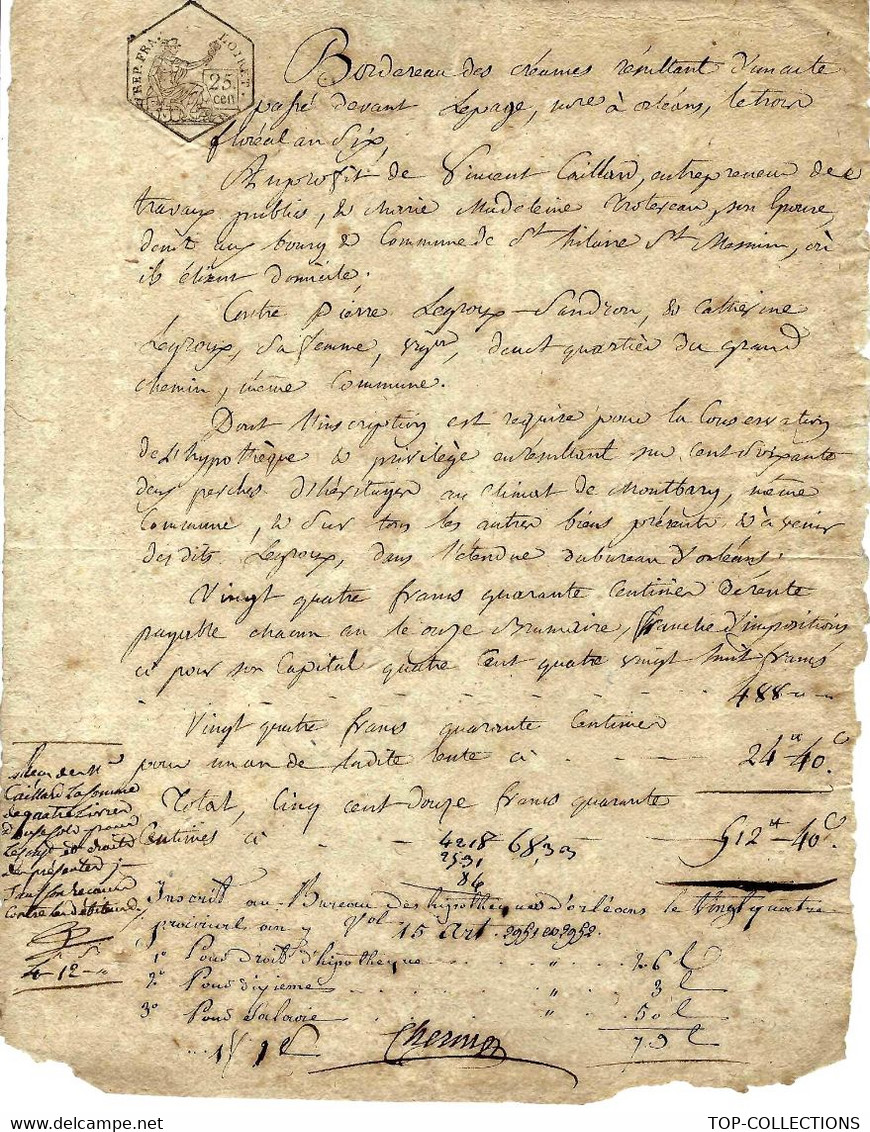 REP. FRA. LOIRET.
25 cen
Bordereau des créances résultant d'un acte
passé devant Lepage, nre à orléans, le trois
floréal an Six,
Au profit de Vincent Caillard, entrepreneur de
travaux publics, & Marie Madeleine Trotereau, son Epouse,
demt au bourg & Commune de St hilaire St Mesmin, où
ils élisent domicile.
Contre pierre Legroux-Sandron, & Catherine
Legroux, sa femme, vigr, demt quartier du grand
chemin, même Commune.
Dont l'inscription est requise pour la Conservation
de L'hypothèque & privilège en résultant sur Cent soixante
deux perches d'héritages au Climat de Montbary, même
Commune, & sur tous les autres biens présents & à venir
des dits Legroux, dans l'étendue du bureau d'orléans.
Vingt quatre francs quarante Centimes de rente
payable chacun an le onze Brumaire, franche d'impositions
ci pour son Capital quatre Cent quatre vingt huit francs
488 " "
Vingt quatre francs quarante Centimes
pour un an de ladite rente ci 24 40c
Total, Cinq cent douze francs quarante
Centimes ci 512 40c.
4218 68,33
2531
86
Caillard La somme
de quatre Livres
Douze sols pour
et droits
du présenter
Sauf son recours
Contre les débiteurs
4-12-"
Inscrit au Bureau des hypotheques d'orléans le Vingt quatre
prairial an 7 Vol 15 Art. 2951 et 2952.
1o Pour droit d'hipotheque " 26
2o Pour dixieme " 3
3o Pour Salaire " 50
79